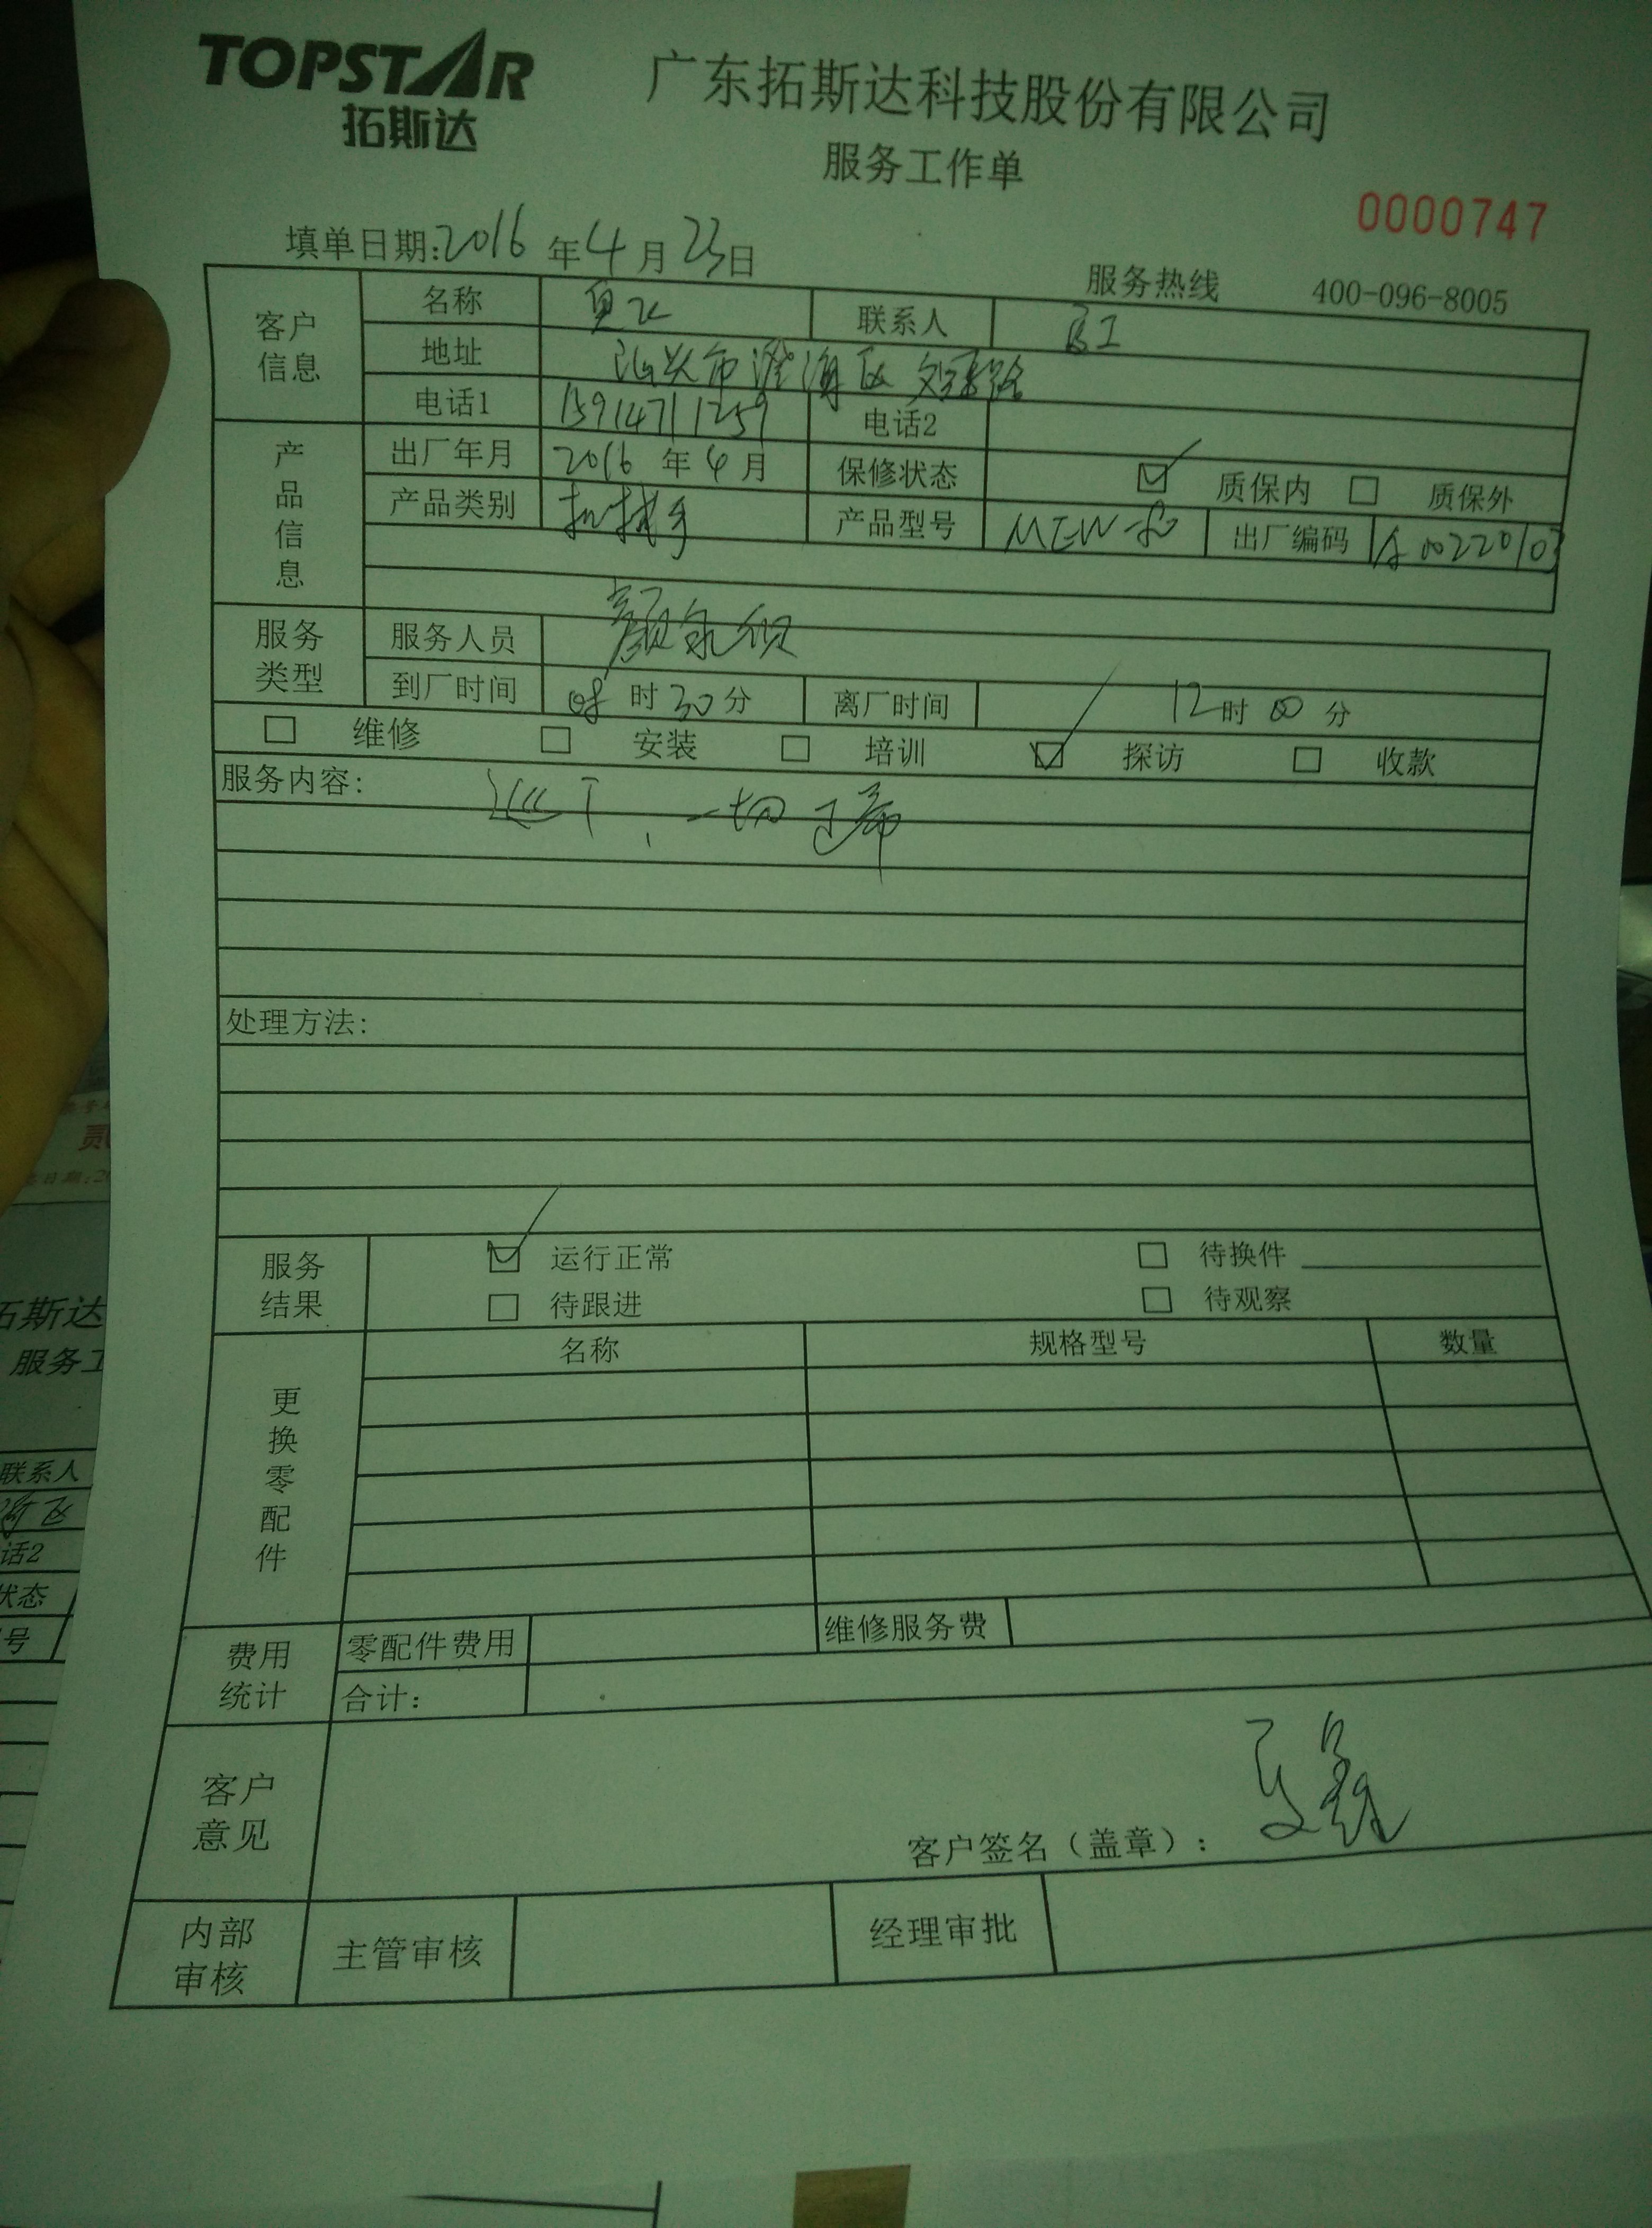 TOPSTAR
拓斯达
广东拓斯达科技股份有限公司
服务工作单
0000747
填单日期:2016年4月23日
服务热线 400-096-8005
客户信息
名称
联系人
地址 汕头市澄海区
电话1 15914711259 电话2
产品信息
出厂年月 2016年4月 保修状态 质保内 质保外
产品类别 机械手 产品型号 MEW-80 出厂编码 A00220103
服务类型
服务人员 颜
到厂时间 08时30分 离厂时间 12时00分
维修 安装 培训 探访 收款
服务内容: 巡厂,一切正常
处理方法:
服务结果
运行正常 待换件
待跟进 待观察
更换零配件
名称 规格型号 数量
费用统计
零配件费用 维修服务费
合计:
客户意见
客户签名(盖章):
内部审核
主管审核 经理审批
石斯达
服务工
联系人
话2
状态
号